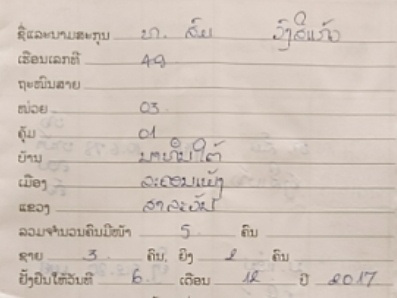 ຊື່ແລະນາມສະກຸນ ທ. ສົມ ວົງສີແກ້ວ
ເຮືອນເລກທີ 49
ຖະໜົນສາຍ
ໜ່ວຍ 03
ຄຸ້ມ 01
ບ້ານ ນາຫີນໃຕ້
ເມືອງ ລະຄອນເພັງ
ແຂວງ ສາລະວັນ
ລວມຈຳນວນຄົນມີໜ້າ 5 ຄົນ
ຊາຍ 3 ຄົນ, ຍິງ 2 ຄົນ
ຢັ້ງຢືນໃຫ້ວັນທີ 6 ເດືອນ 12 ປີ 2017